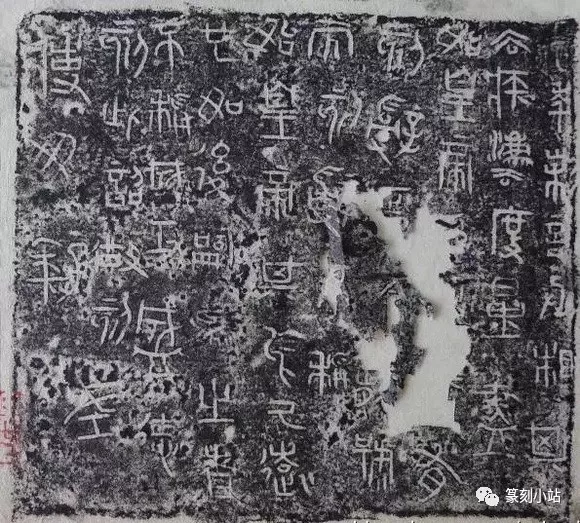 年制詔丞相
去疾灋度量盡
始皇帝有
刻辭今襲號
而刻辭不稱
始皇帝其於久遠
也如後嗣為之者
不稱成功盛德
刻此詔故刻左
使毋疑
篆刻小站